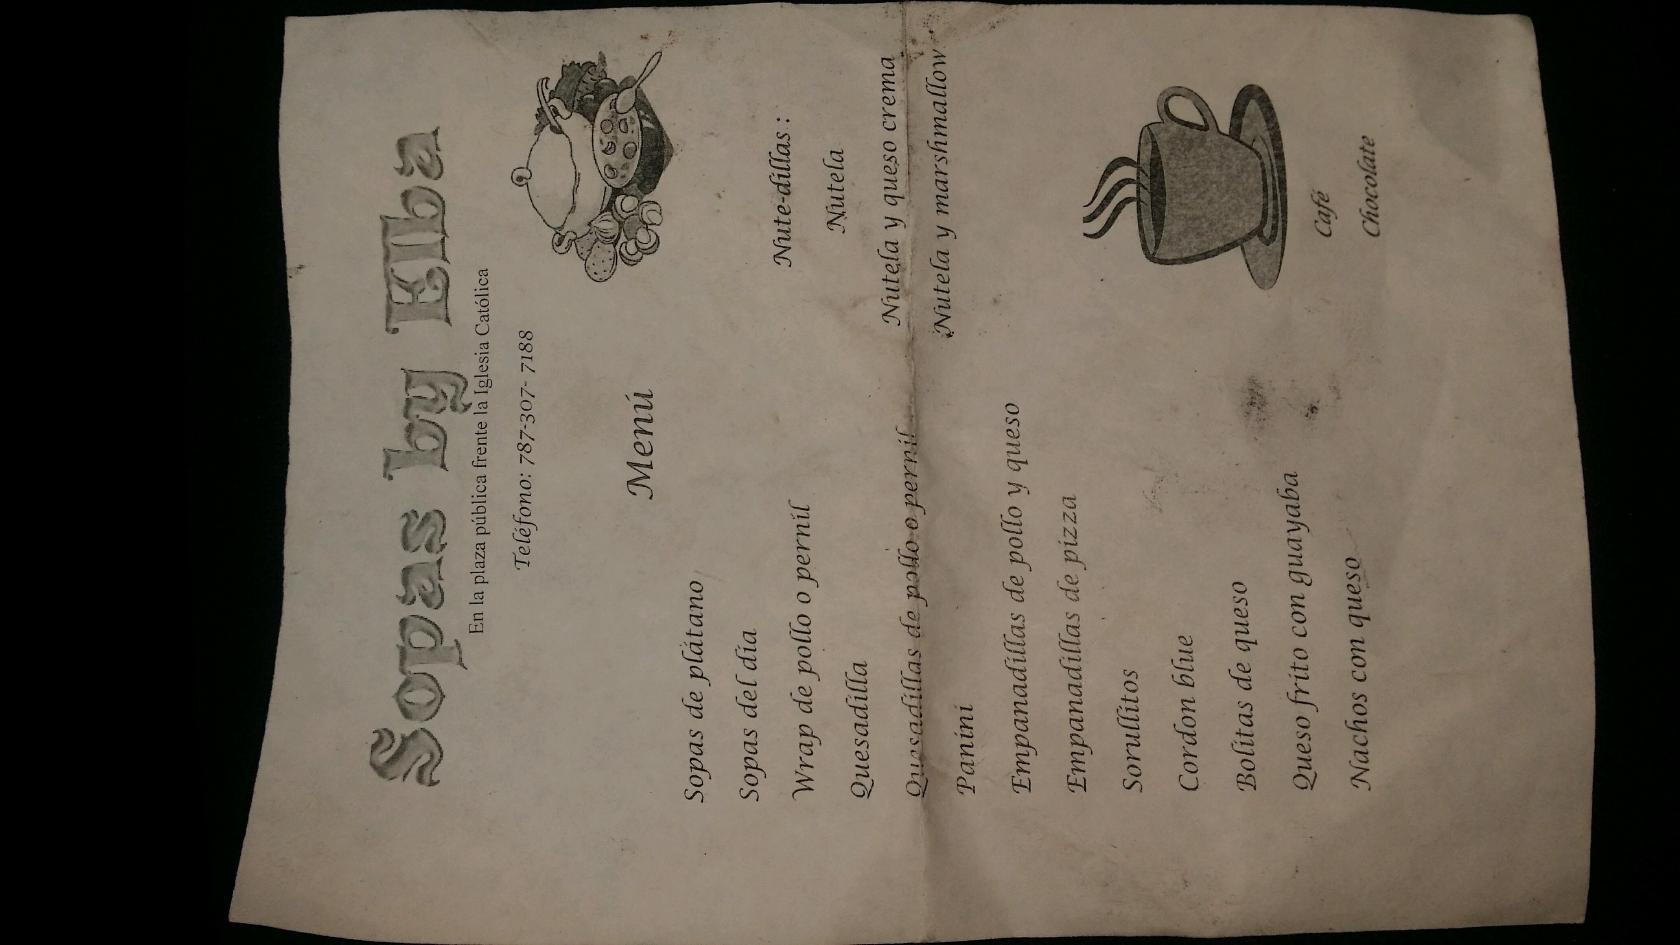 Sopas by Elba
En la plaza pública frente la Iglesia Católica
Teléfono: 787-307- 7188
Menú
Sopas de plátano
Sopas del día
Wrap de pollo o pernil
Quesadilla
Quesadillas de pollo o pernil
Panini
Empanadillas de pollo y queso
Empanadillas de pizza
Sorullitos
Cordon blue
Bolitas de queso
Queso frito con guayaba
Nachos con queso
Nute-dillas :
Nutela
Nutela y queso crema
Nutela y marshmallow
Café
Chocolate